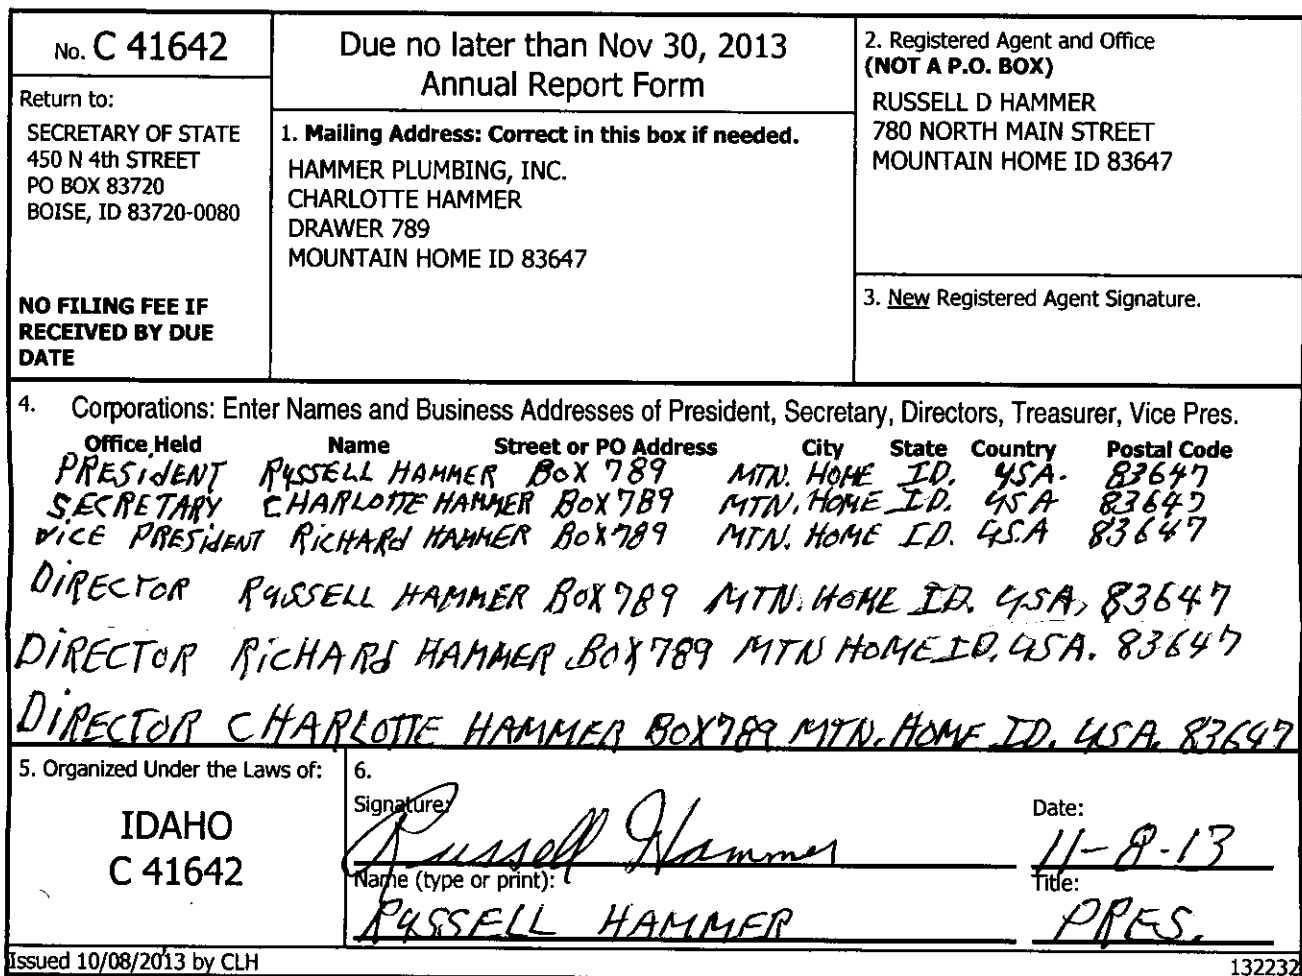 No. C 41642
Return to:
SECRETARY OF STATE
450 N 4th STREET
PO BOX 83720
BOISE, ID 83720-0080
NO FILING FEE IF
RECEIVED BY DUE
DATE
Due no later than Nov 30, 2013
Annual Report Form
1. Mailing Address: Correct in this box if needed.
HAMMER PLUMBING, INC.
CHARLOTTE HAMMER
DRAWER 789
MOUNTAIN HOME ID 83647
2. Registered Agent and Office
(NOT A P.O. BOX)
RUSSELL D HAMMER
780 NORTH MAIN STREET
MOUNTAIN HOME ID 83647
3. New Registered Agent Signature.
4. Corporations: Enter Names and Business Addresses of President, Secretary, Directors, Treasurer, Vice Pres.
Office Held Name Street or PO Address City State Country Postal Code
PRESIDENT RUSSELL HAMMER BOX 789 MTN. HOME ID. USA. 83647
SECRETARY CHARLOTTE HAMMER BOX 789 MTN. HOME ID. USA 83647
VICE PRESIDENT RICHARD HAMMER BOX 789 MTN. HOME ID. USA 83647
DIRECTOR RUSSELL HAMMER BOX 789 MTN. HOME ID. USA, 83647
DIRECTOR RICHARD HAMMER BOX 789 MTN HOME ID. USA. 83647
DIRECTOR CHARLOTTE HAMMER BOX 789 MTN. HOME ID. USA. 83647
5. Organized Under the Laws of:
IDAHO
C 41642
6.
Signature: Russell Hammer
Date: 11-8-13
Name (type or print): RUSSELL HAMMER
Title: PRES.
Issued 10/08/2013 by CLH
132232